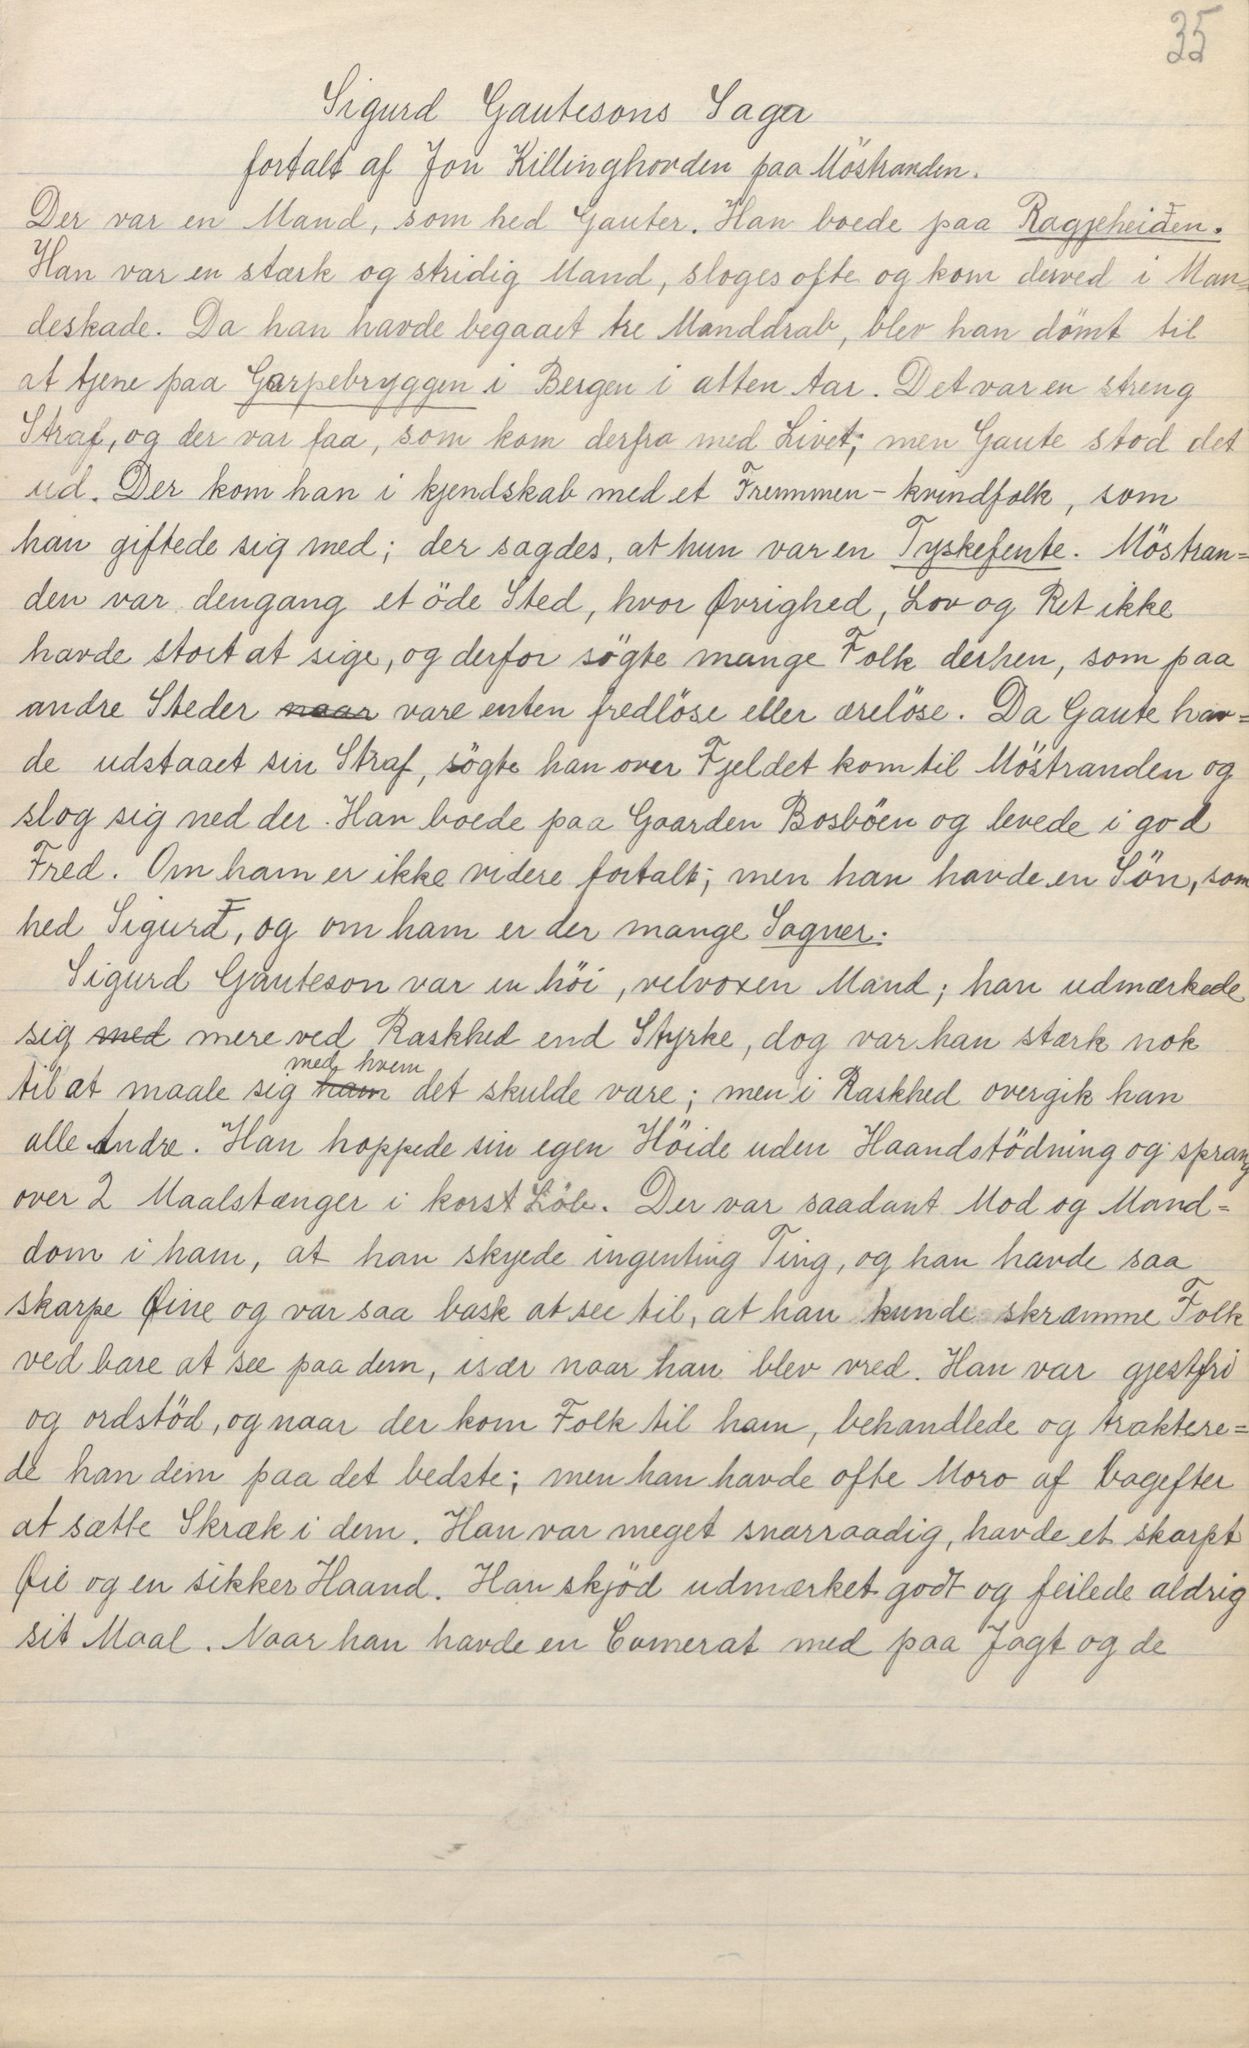 35
Sigurd Gautesons Saga
fortalt af Jon Killinghovden paa Möstranden.
Der var en Mand, som hed Gauter. Han boede paa Raggeheiden.
Han var en stærk og stridig Mand, sloges ofte og kom derved i Man=
deskade. Da han havde begaaet tre Manddrab, blev han dömt til
at tjene paa Garpebryggen i Bergen i atten Aar. Det var en streng
Straf, og der var faa, som kom derfra med Livet; men Gaute stod det
ud. Der kom han i kjendskab med et Fremmen-kvindfolk, som
han giftede sig med; der sagdes, at hun var en Tyskefente. Möstran=
den var dengang et öde Sted, hvor Øvrighed, Lov og Ret ikke
havde stort at sige, og derfor sögte mange Folk derhen, som paa
andre Steder naar vare enten fredlöse eller ærelöse. Da Gaute hav=
de udstaaet sin Straf, sögte han over Fjeldet kom til Möstranden og
slog sig ned der. Han boede paa Gaarden Bosböen og levede i god
Fred. Om ham er ikke videre fortalt; men han havde en Sön, som
hed Sigurd, og om ham er der mange Sagner.
Sigurd Gauteson var en höi, velvoxen Mand; han udmærkede
sig med mere ved Raskhed end Styrke, dog var han stærk nok
med hvem
til at maale sig ham det skulde være; men i Raskhed overgik han
alle Andre. Han hoppede sin egen Höide uden Haandstödning og sprang
over 2 Maalstænger i korst Löb. Der var saadant Mod og Mand=
dom i ham, at han skyede ingenting Ting, og han havde saa
skarpe Øine og var saa bask at see til, at han kunde skræmme Folk
ved bare at see paa dem, især naar han blev vred. Han var gjestfri
og ordstöd, og naar der kom Folk til ham, behandlede og traktere=
de han dem paa det bedste; men han havde ofte Moro af bagefter
at sætte Skræk i dem. Han var meget snarraadig, havde et skarpt
Øie og en sikker Haand. Han skjöd udmærket godt og feilede aldrig
sit Maal. Naar han havde en Camerat med paa Jagt og de